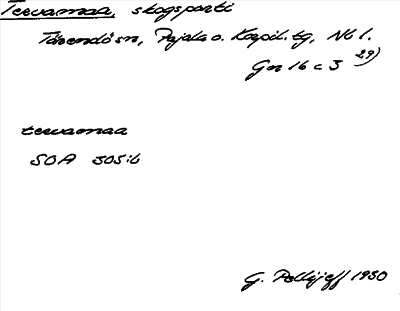 Teevamaa, skogsparti
Tärendö sn, Pajala o. Korpil. tg, Nb l.
Gn 16 c 3 29)
teevamaa
SOA 305:6
G. Pellijeff 1980